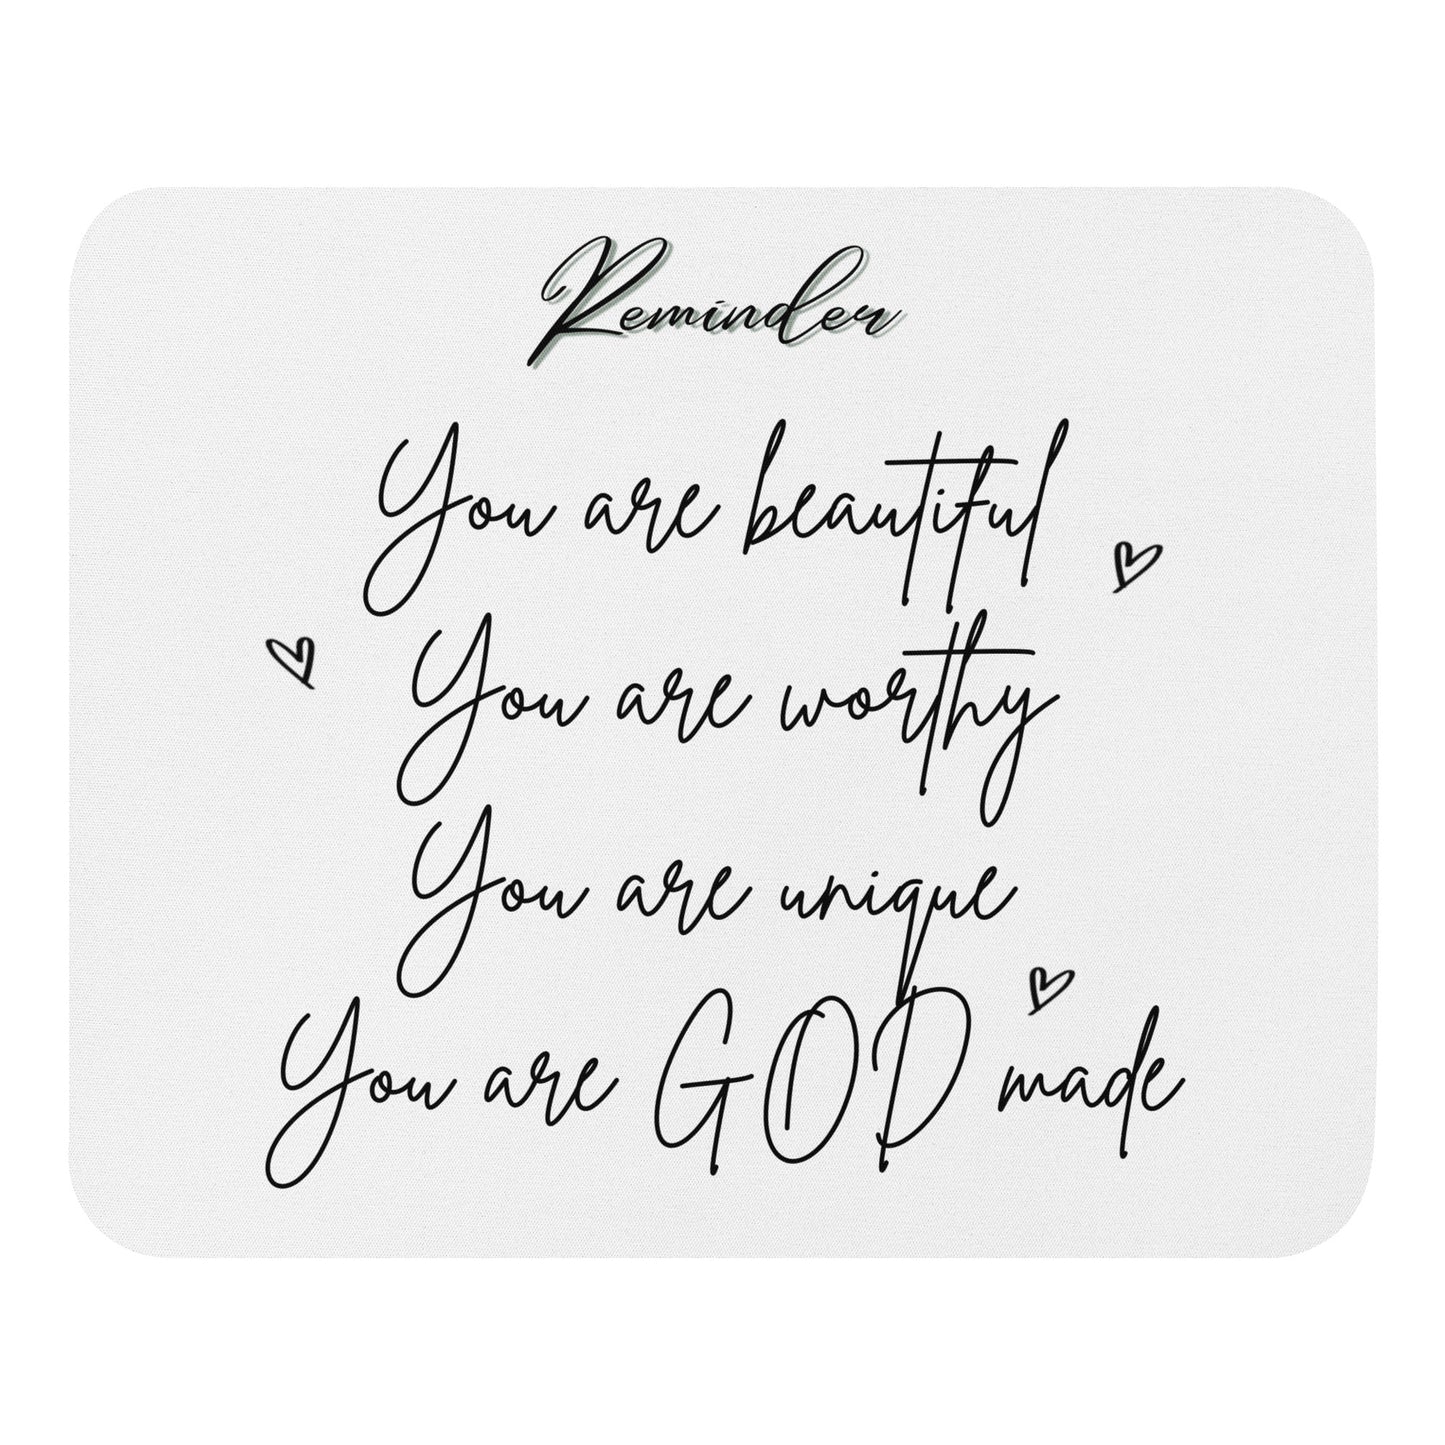 Reminder
You are beautiful
You are worthy
You are unique
You are GOD made